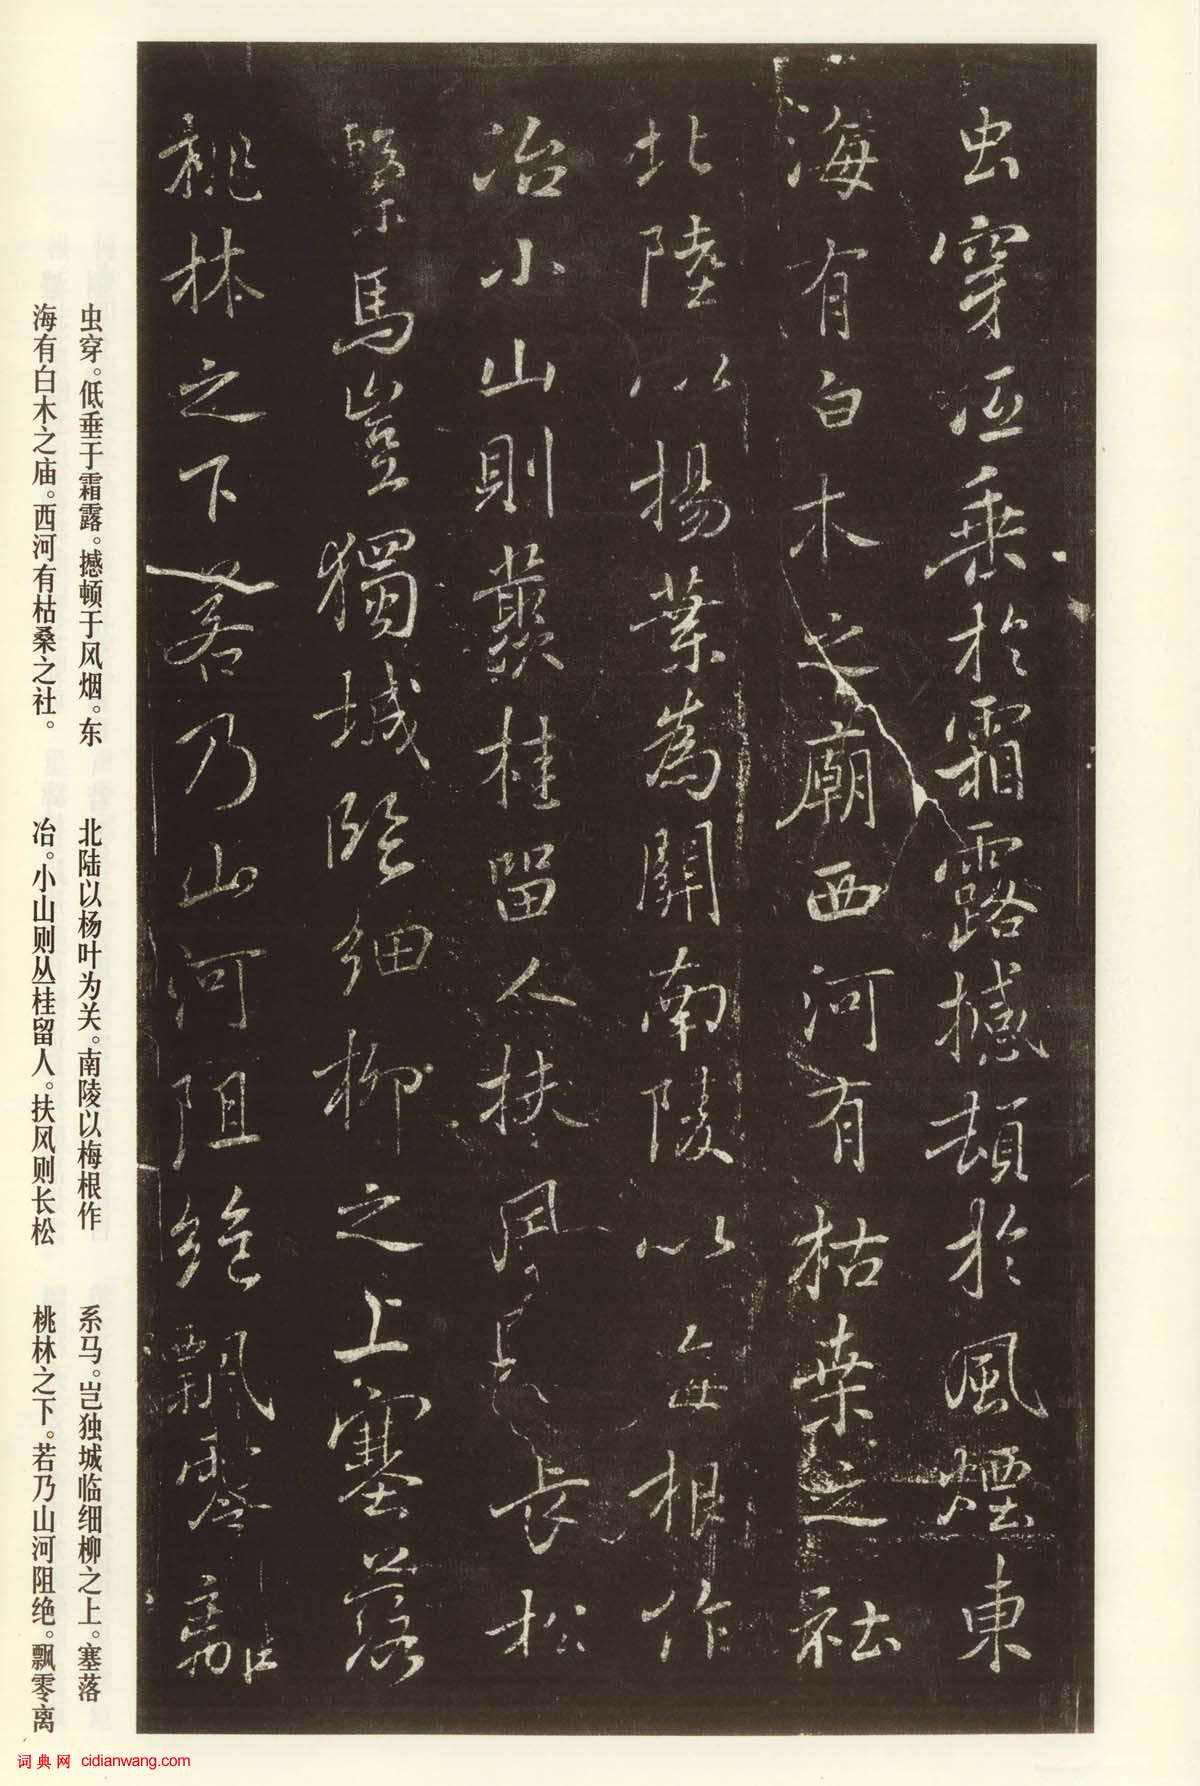 虫穿低垂於霜露撼頓於風煙東
海有白木之廟西河有枯桒之社
北陸以揚葉為關南陵以每根作
冶小山則叢桂留人扶風長松
繫馬豈獨城臨細柳之上塞落
桃林之下若乃山河阻絕飄零離
虫穿。低垂于霜露。撼顿于风烟。东
海有白木之庙。西河有枯桑之社。
北陆以杨叶为关。南陵以梅根作
冶。小山则丛桂留人。扶风则长松
系马。岂独城临细柳之上。塞落
桃林之下。若乃山河阻绝。飘零离
词典网 cidianwang.com